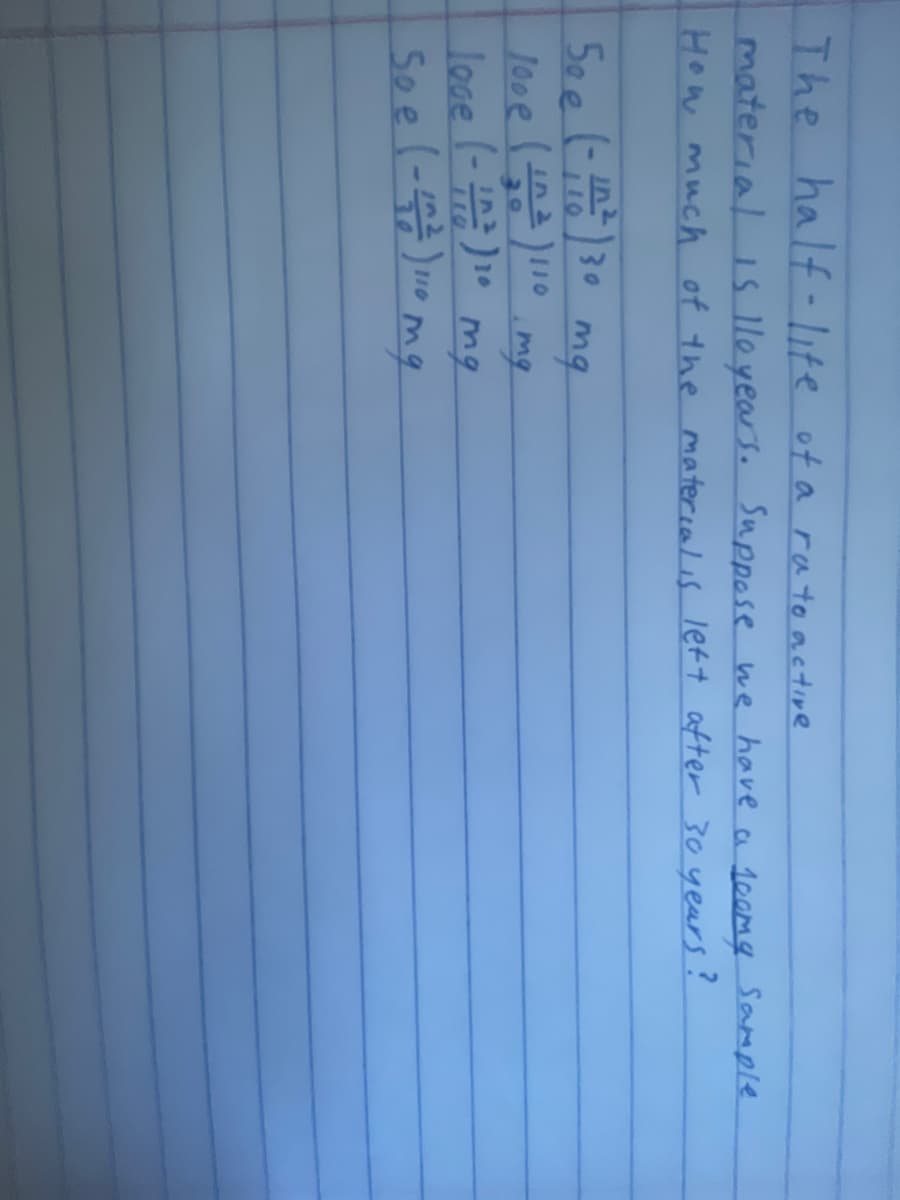 The half-life of a ratoactive
material is 110 years. Suppose we have a 100mg sample
How much of the material is left after 30 years?
50e (- ln2/110) 30 mg
100e (ln2/30) 110 mg
100e (- ln2/110) 30 mg
50e (- ln2/30) 110 mg